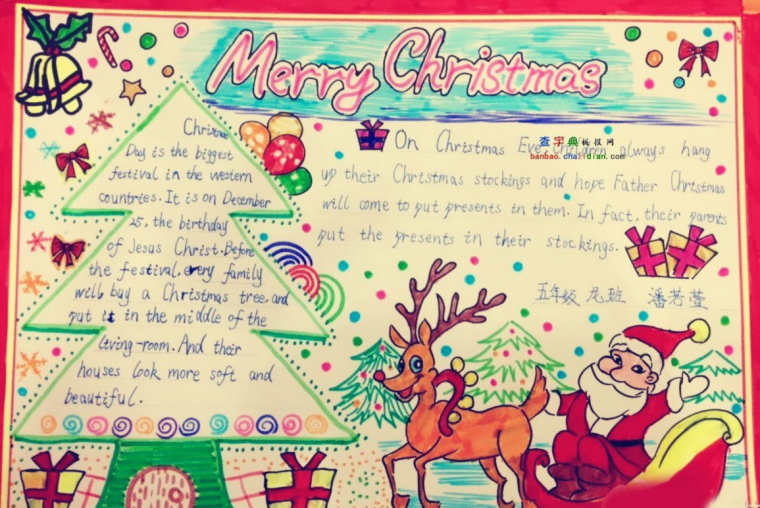 Merry Christmas
Christmas
Day is the biggest
festival in the western
countries. It is on December
25, the birthday
of Jesus Christ. Before
the festival, every family
will buy a Christmas tree, and
put it in the middle of the
living-room. And their
houses look more soft and
beautiful.
On Christmas Eve, children always hang
up their Christmas stockings and hope Father Christmas
will come to put presents in them. In fact, their parents
put the presents in their stockings.
查字典板报网
banbao.chazidian.com
五年级 潘芳莹